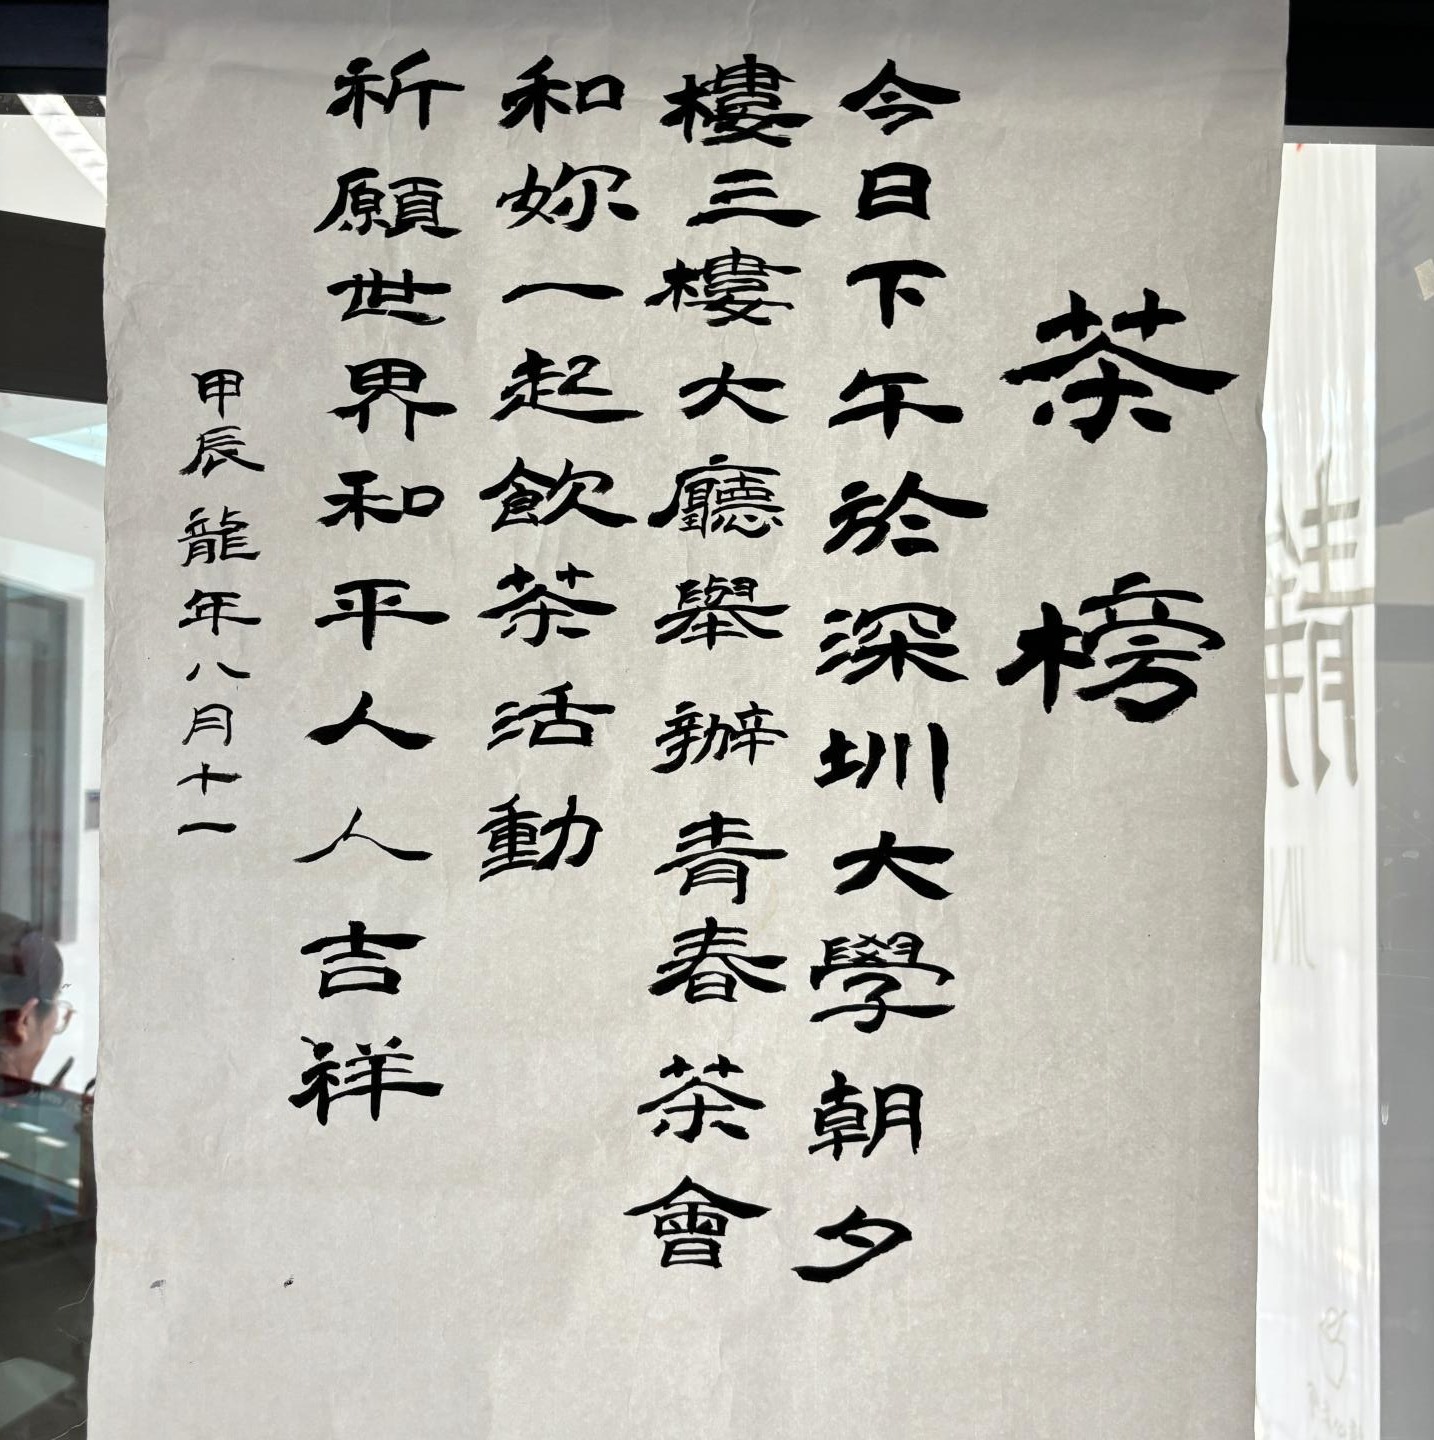 茶榜
今日下午於深圳大學朝夕
樓三樓大廳舉辦青春茶會
和妳一起飲茶活動
祈願世界和平人人吉祥
甲辰龍年八月十一